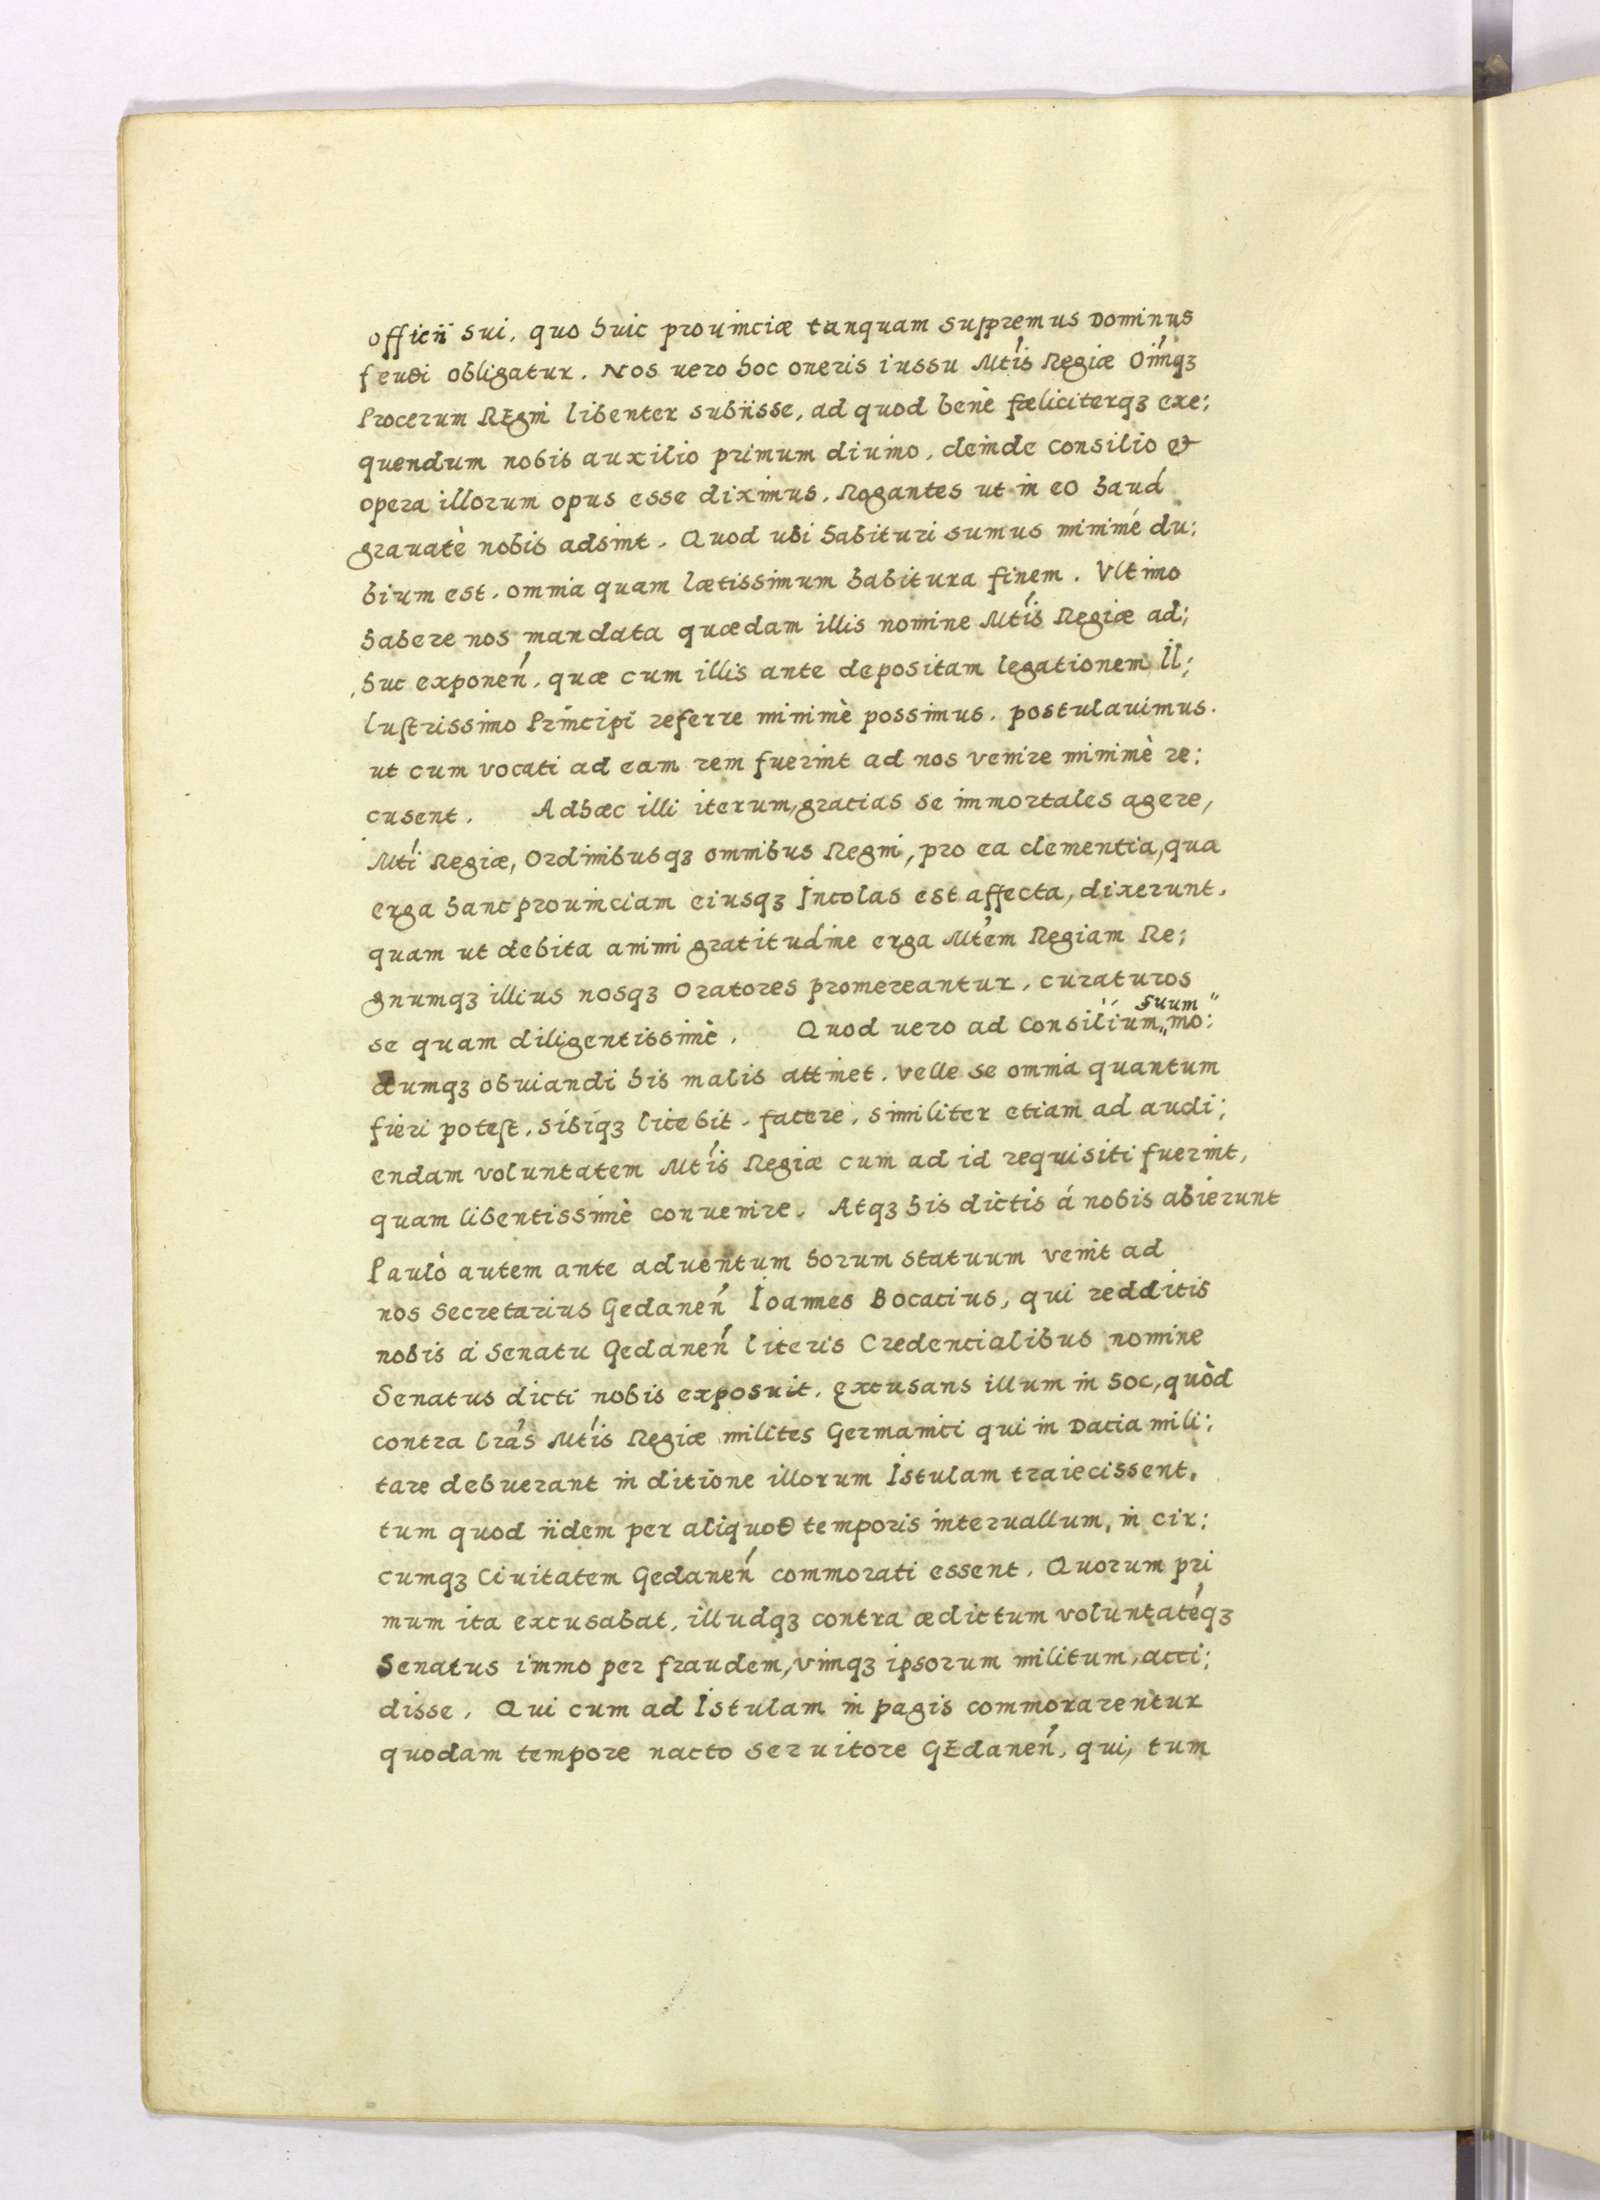 officii sui, quo huic prouinciæ tanquam suppremus Dominus
feudi obligatur. Nos uero hoc oneris iussu Mtis Regiæ Oiмqꝫ
Procerum REgni libenter subiisse, ad quod benè fœliciterqꝫ exe:
quendum nobis auxilio primum diuino, deinde consilio &
opera illorum opus esse diximus. Rogantes ut in eo haud
grauatè nobis adsint. Quod ubi habituri sumus minimé du:
bium est, omnia quam lætissimum habitura finem. Vltimo
habere nos mandata quædam illis nomine Mtis Regiæ ad:
huc exponeń, quæ cum illis ante depositam legationem Il:
lustrissimo Principi referre minimè possimus. postulauimus.
ut cum vocati ad eam rem fuerint ad nos venire minimè re:
cusent. Adhæc illi iterum, gratias se immortales agere,
Mti Regiæ, Ordinibusqꝫ omnibus Regni, pro ea clementia, qua
erga hanc prouinciam eiusqꝫ Incolas est affecta, dixerunt,
quam ut debita animi gratitudine erga Mtem Regiam Re:
gnumqꝫ illius nosqꝫ Oratores promereantur, curaturos
se quam diligentissimè. Quod uero ad Consilium „suum“ mo:
dumqꝫ obuiandi his malis attinet. velle se omnia quantum
fieri potest, sibiqꝫ licebit, facere, similiter etiam ad audi:
endam voluntatem Mtis Regiæ cum ad id requisiti fuerint,
quam libentissimè conuenire. Atqꝫ his dictis á nobis abierunt
Paulò autem ante aduentum horum statuum venit ad
nos Secretarius Gedaneń Ioannes Bocatius, qui redditis
nobis á Senatu Gedaneń literis Credentialibus nomine
Senatus dicti nobis exposuit, excusans illum in hoc, quòd
contra lrás Mtis Regiæ milites Germanici qui in Dacia mili:
tare debuerant in ditione illorum Istulam traiecissent,
tum quod iidem per aliquod temporis interuallum, in cir:
cumqꝫ Ciuitatem Gedaneń commorati essent. Quorum pri
mum ita excusabat, illudqꝫ contra ædictum voluntatéqꝫ
Senatus immo per fraudem, vimqꝫ ipsorum militum, acci:
disse. Qui cum ad Istulam in pagis commorarentur
quodam tempore nacto Seruitore GEdaneń, qui, tum